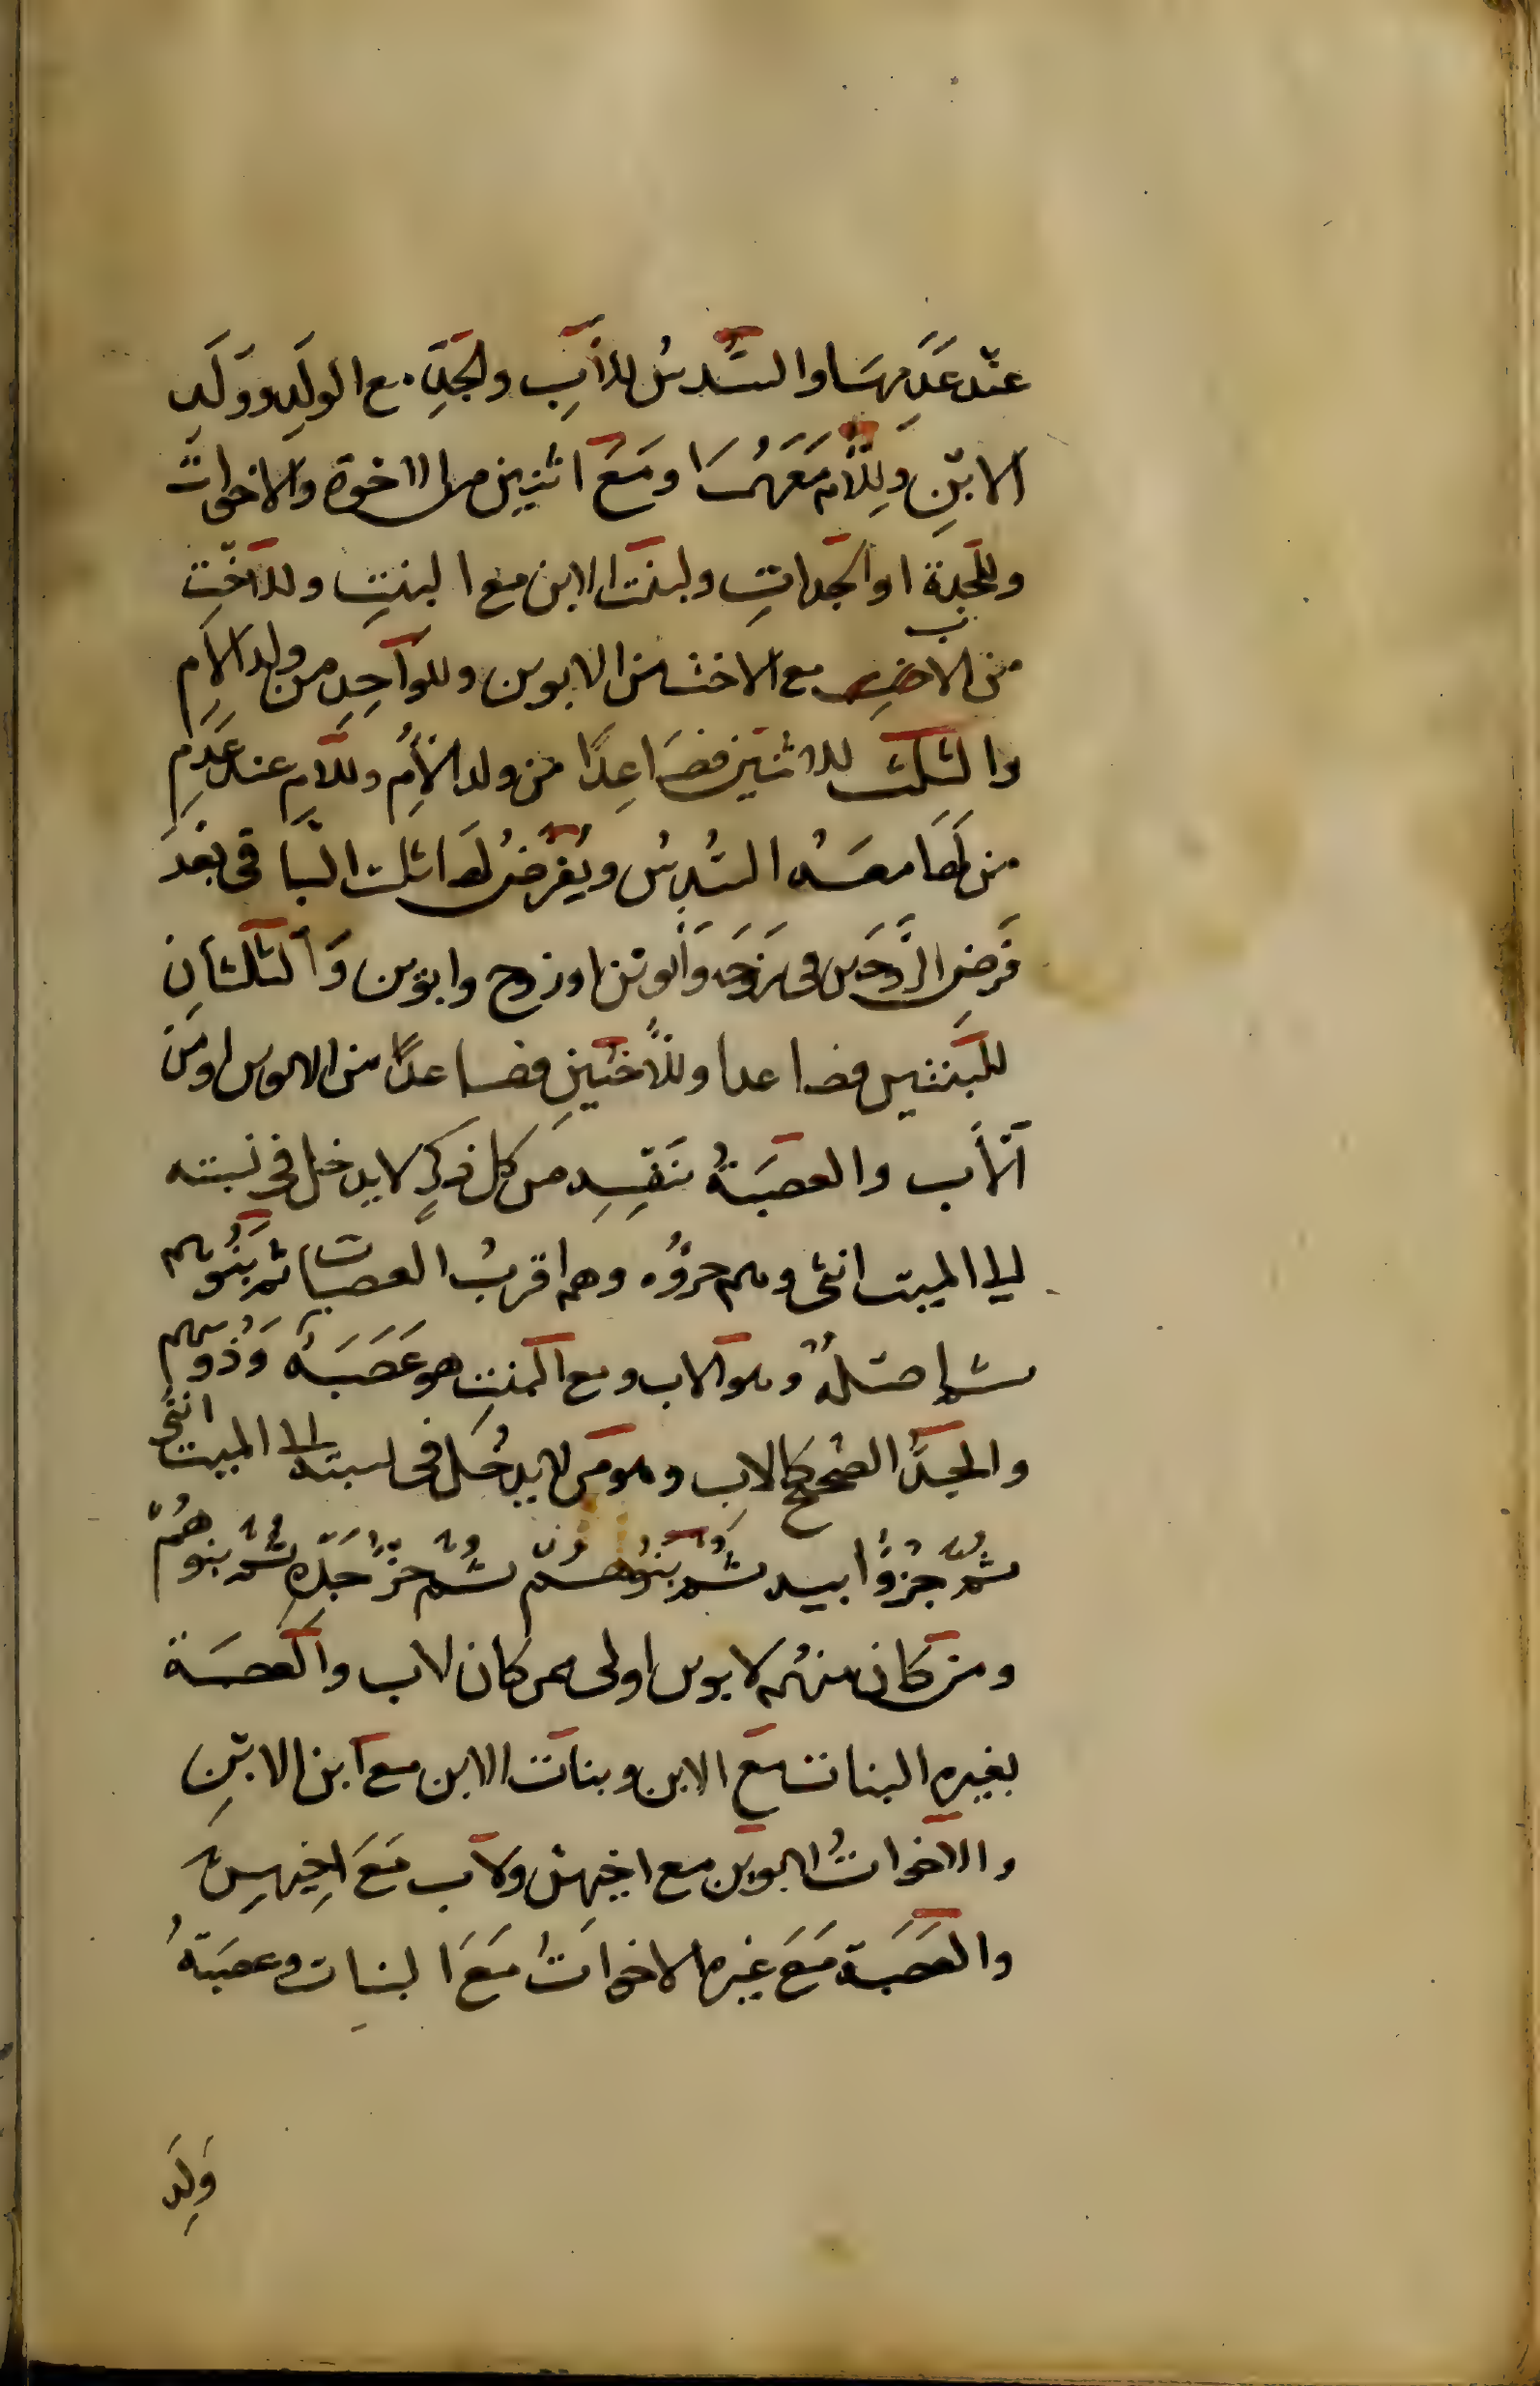 عند عدمهما والسدس للاب والجد مع الولد وولد
الابن وللام معهما ومع اثنين من الاخوة والاخوات
وللجدة او الجدات ولبنت الابن مع البنت وللاخت
من الاب مع الاخت من الابوين وللواحد من ولد الام
والثلث للاثنين فصاعدا من ولد الام وللام عند عدم
من لها معه السدس ويفرض لها ثلث الباقى بعد
فرض الزوجين فى زوجه وابوين او زوج وابوين والثلثان
للبنتين فصاعدا وللاختين فصاعدا من الابوين او من
الاب والعصبة بنفسه من كل ذكر لا يدخل فى نسبته
الى الميت انثى وهم جزؤه وهم اقرب العصبات ثم بنوهم
ثم اصله وهو الاب ومع البنت هو عصبة وذو سهم
والجد الصحيح كالاب وهو من لا يدخل فى نسبته الى الميت انثى
ثم جزؤ ابيه ثم بنوهم ثم جزؤ جده ثم بنوهم
ومن كان منهم لابوين اولى ممن كان لاب والعصبة
بغيره البنات مع الابن وبنات الابن مع ابن الابن
والاخوات لابوين مع اخيهن ولاب مع اخيهن
والعصبة مع غيره الاخوات مع البنات وعصبة
ولد